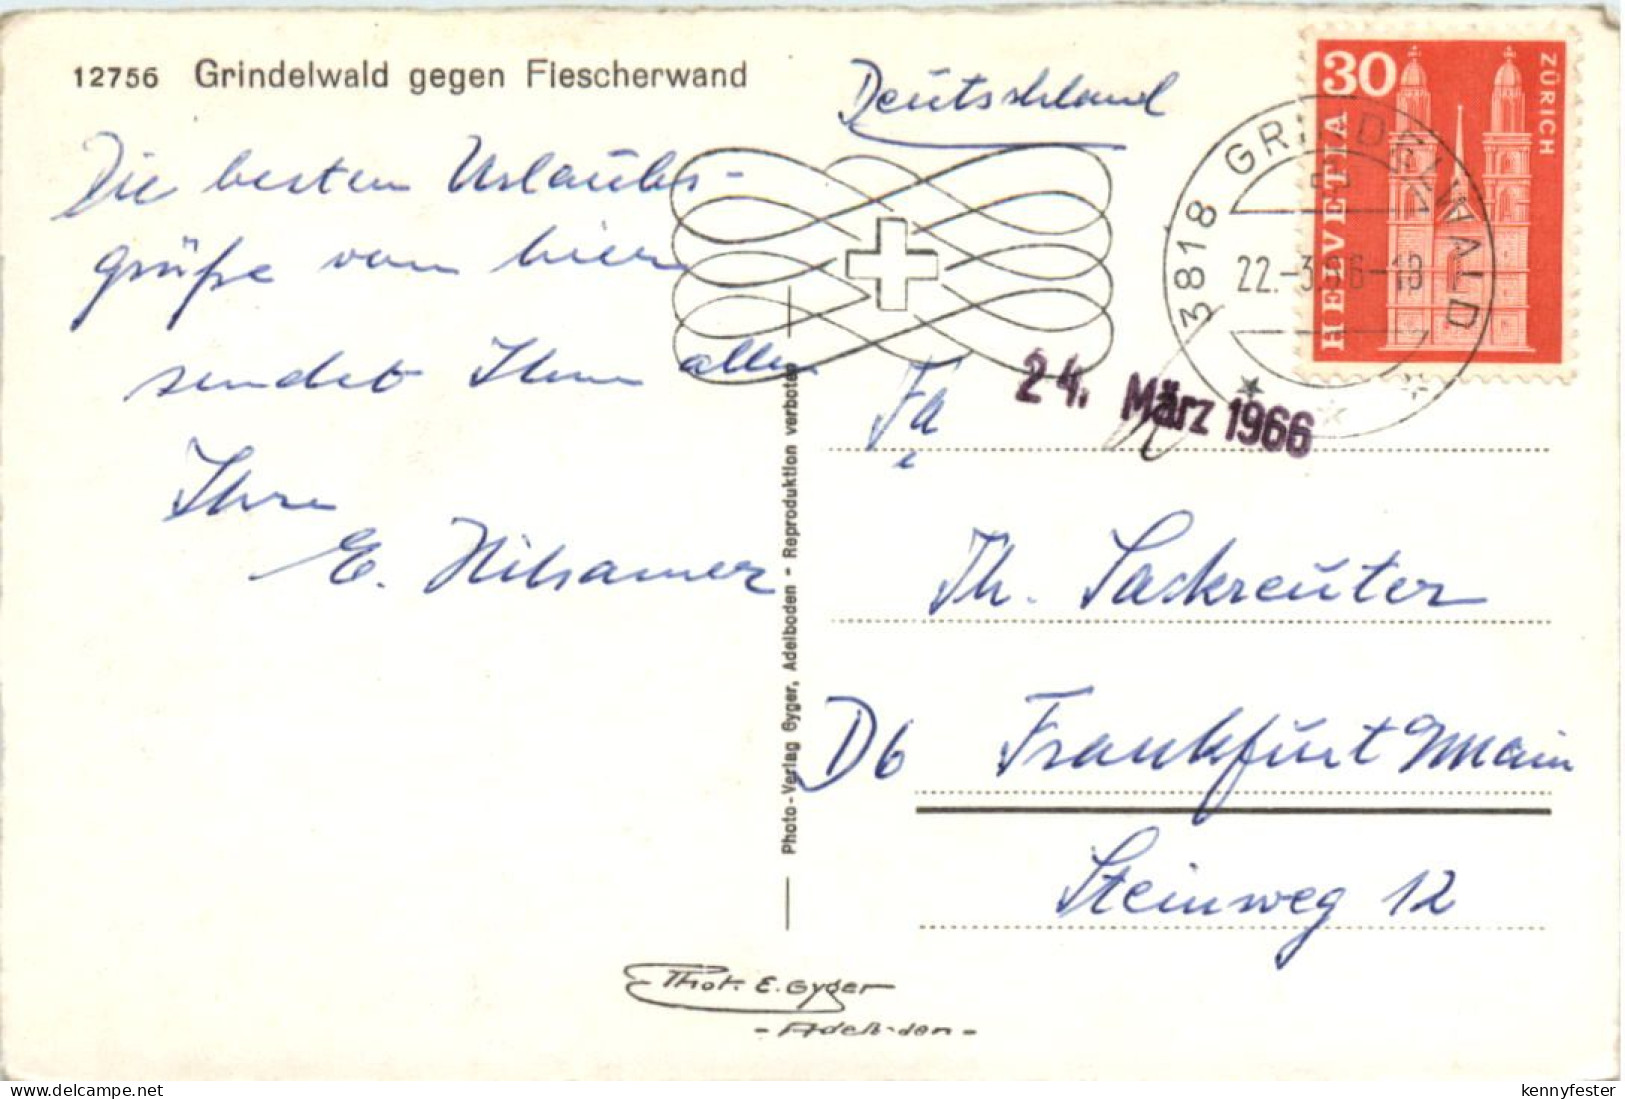 12756 Grindelwald gegen Fiescherwand
Die besten Urlaubs-
grüße von hier
sendet Ihnen allen
Ihre
E. Hilsamer
Photo-Verlag Gyger, Adelboden - Reproduktion verboten
Phot. E. Gyger
- Adelboden -
Deutschland
30
HELVETIA
ZÜRICH
3818 GRINDELWALD
22.-3.66-18
24. März 1966
Fa.
Th. Sackreuter
D6 Frankfurt Main
Steinweg 12
kennyfester